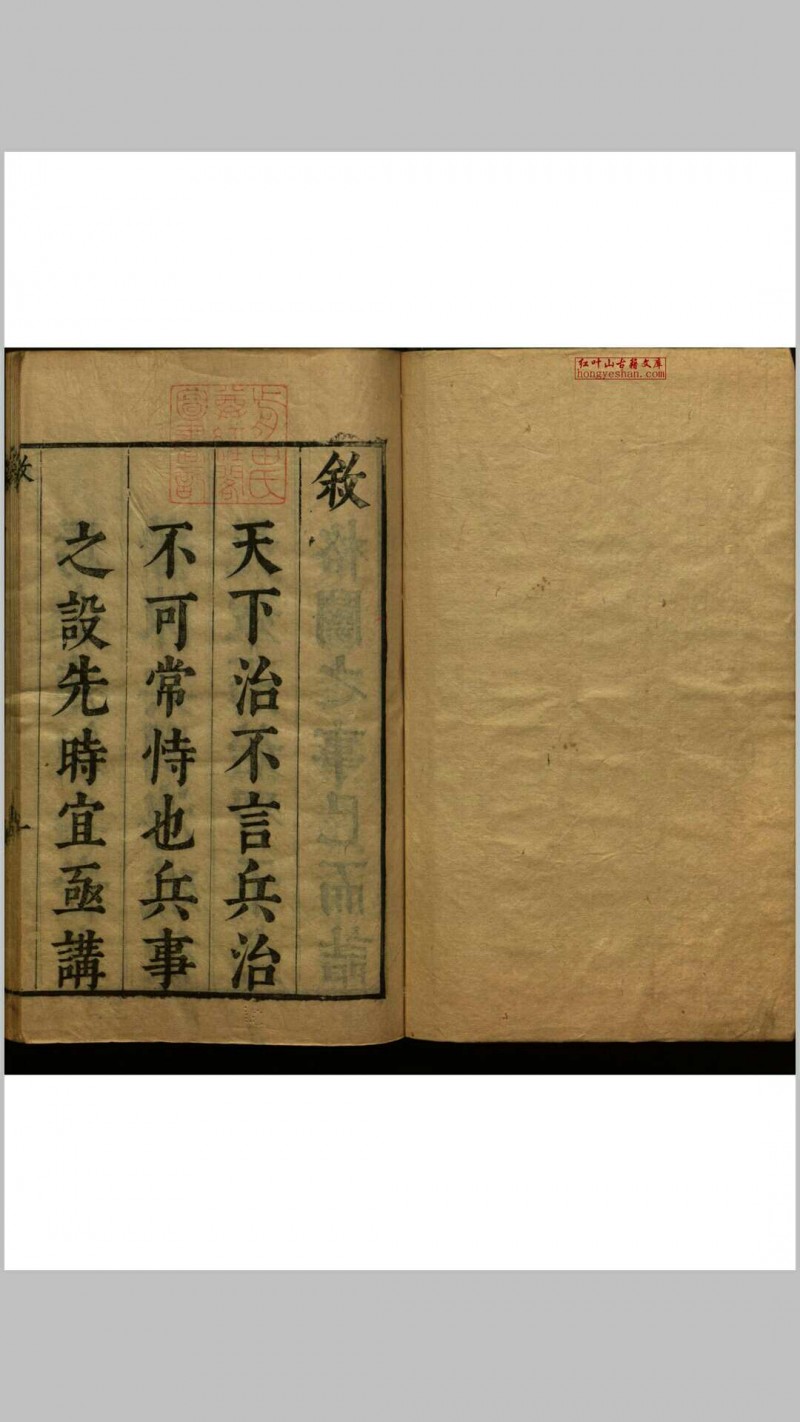 红叶山古籍文库
hongyeshan.com
敘
天下治不言兵治
不可常恃也兵事
之設先時宜亟講
敘
一